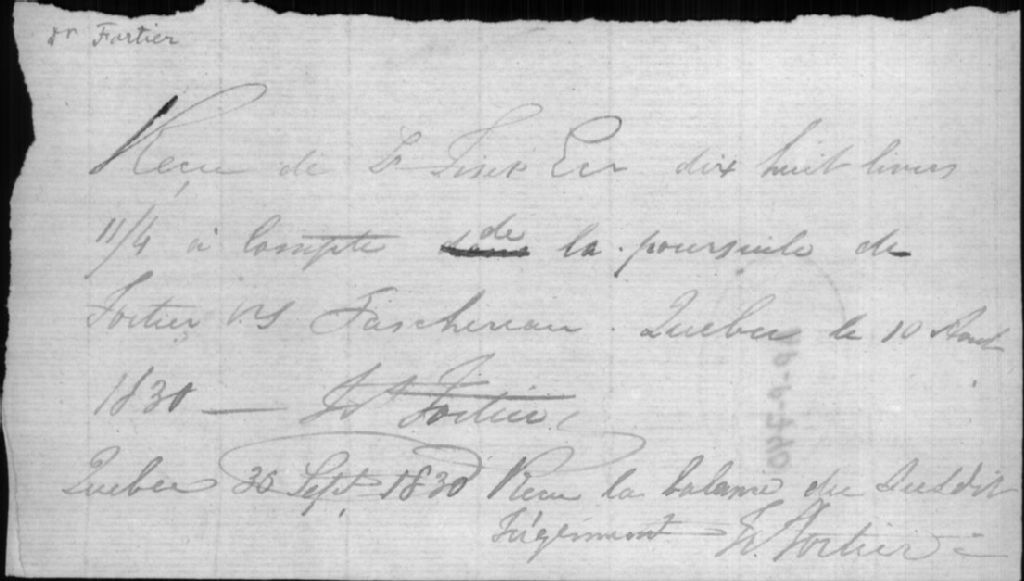 dr Fortier
Reçu de Fr Fiset Ecr dix huit livres
11/4 à Compte de la poursuite de
Fortier vs Taschereau. Quebec le 10 Aout
1830 — Fortier
Quebec 30 Sept 1830 Recu la balance du Susdit
Jugement — Fr. Fortier